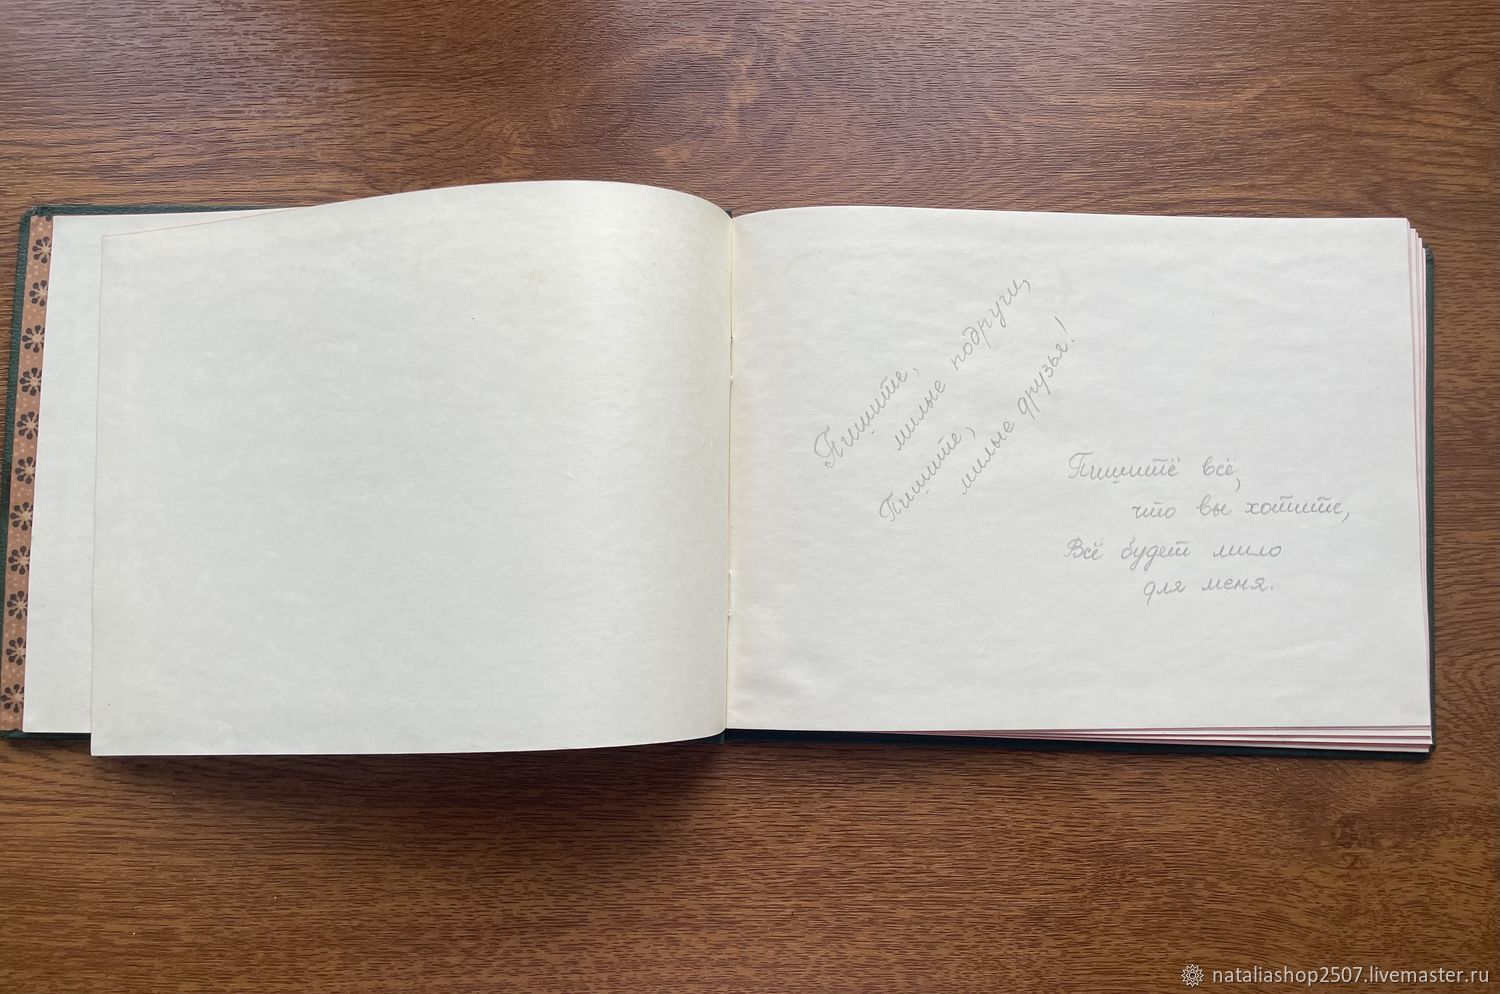 Пишите,
милые подруги,
Пишите,
милые друзья!
Пишитё всё,
что вы хотите,
Всё будет мило
для меня.
nataliashop2507.livemaster.ru